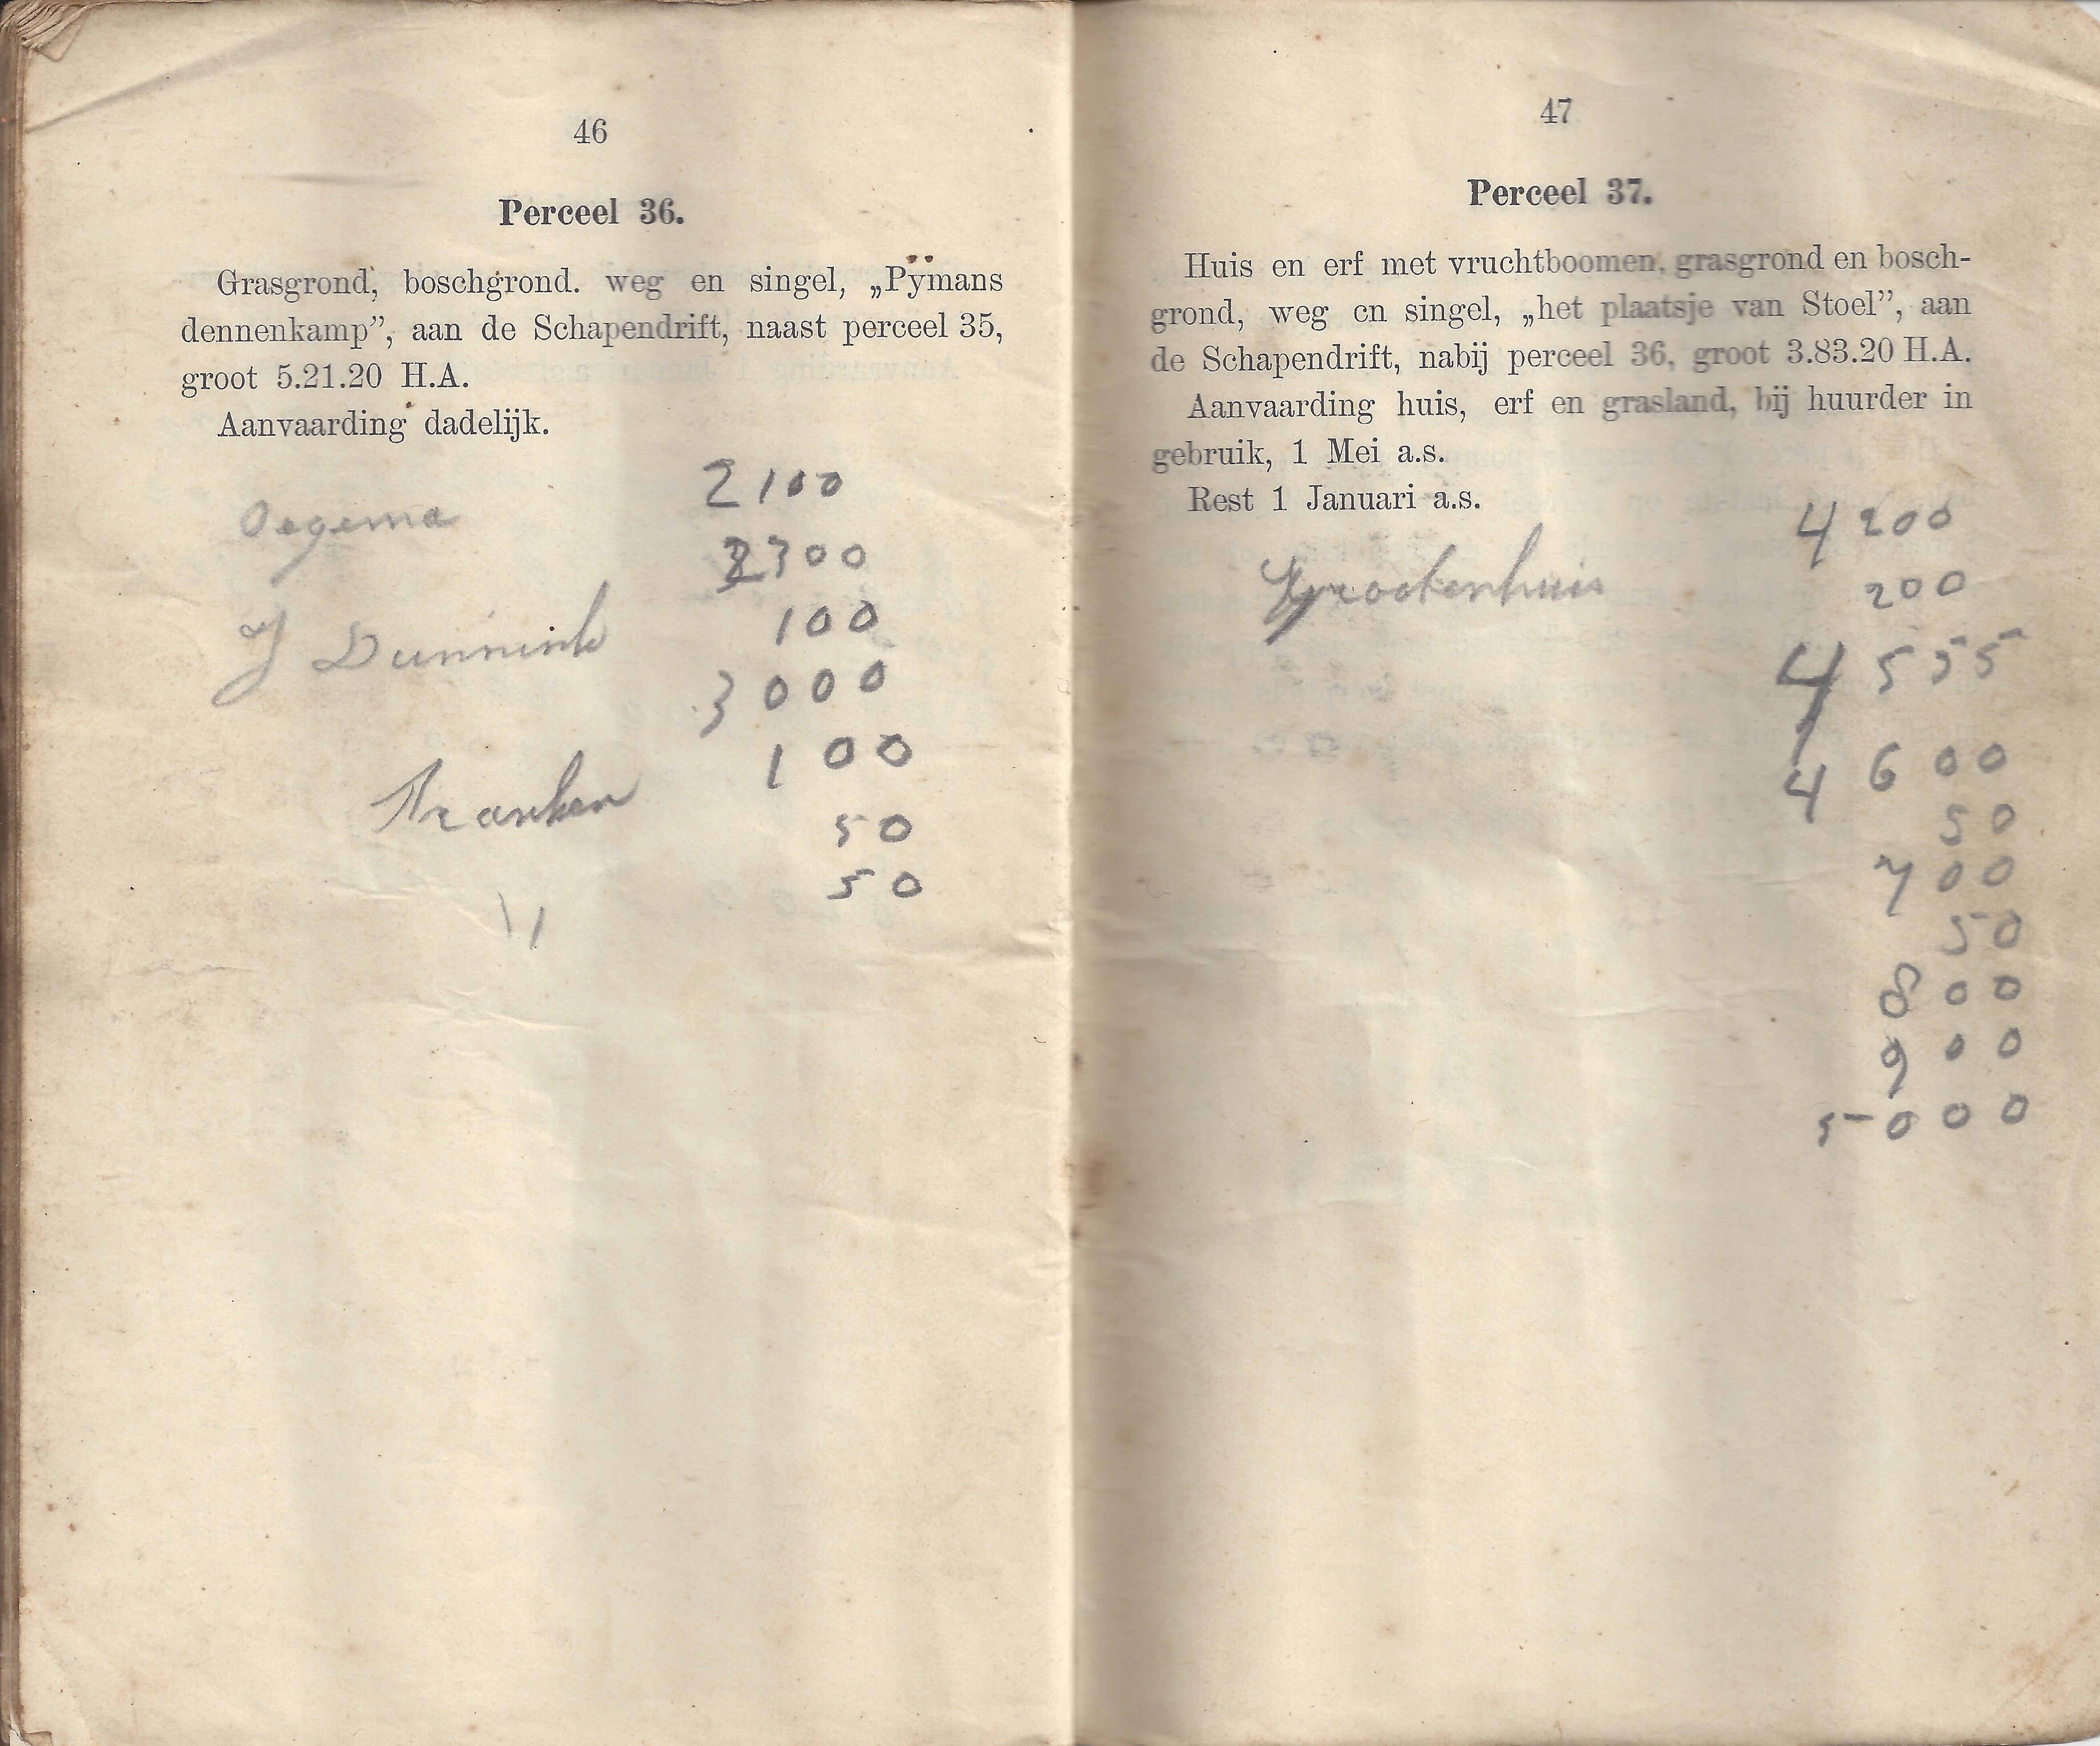 46
Perceel 36.
Grasgrond, boschgrond. weg en singel, „Pÿmans
dennenkamp”, aan de Schapendrift, naast perceel 35,
groot 5.21.20 H.A.
Aanvaarding dadelijk.
2100
Oegema
2300
J Dunnink
100
3000
100
Franken
50
50
47
Perceel 37.
Huis en erf met vruchtboomen, grasgrond en bosch-
grond, weg en singel, „het plaatsje van Stoel”, aan
de Schapendrift, nabij perceel 36, groot 3.83.20 H.A.
Aanvaarding huis, erf en grasland, bij huurder in
gebruik, 1 Mei a.s.
Rest 1 Januari a.s.
4200
Grootenhuis
200
4555
4600
50
700
50
800
900
5000